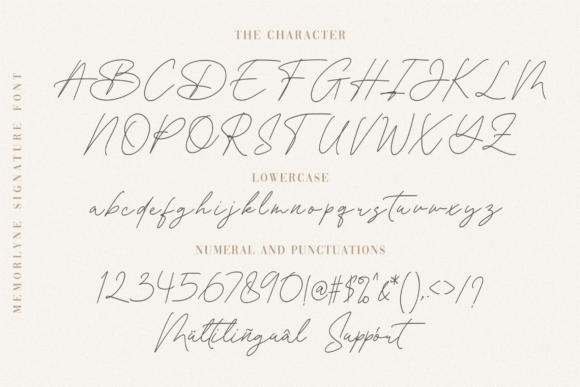 THE CHARACTER
ABCDEFGHIJKLM
NOPQRSTUVWXYZ
LOWERCASE
abcdefghijklmnopqrstuvwxyz
NUMERAL AND PUNCTUATIONS
1234567890!@#$%^&*(),.<>/?
Múltilingùâl Suppórt
MEMORLYNE SIGNATURE FONT